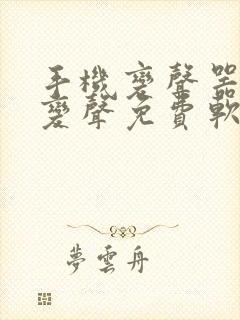 手機變聲器
變聲免費軟
夢雲舟